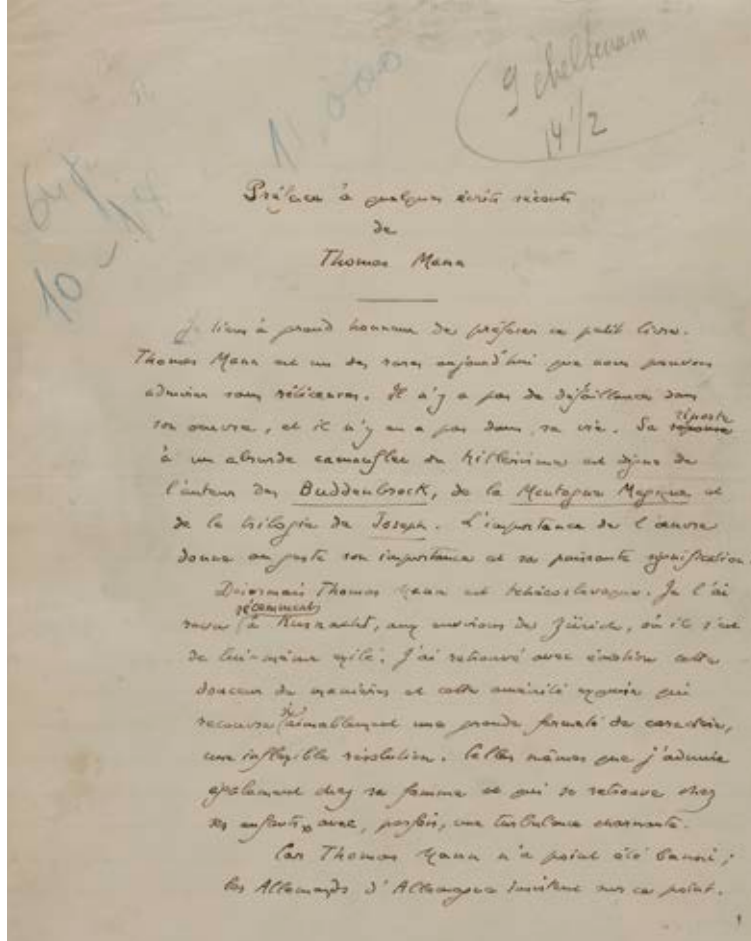 9 cheltenam
14 1/2
11.000
10
Préface à quelques écrits récents
de
Thomas Mann
Je tiens à grand honneur de préfacer ce petit livre.
Thomas Mann est un des rares aujourd'hui que nous pouvons
admirer sans réticences. Il n'y a pas de défaillance dans
son oeuvre, et il n'y en a pas dans sa vie. Sa réponse riposte
à un absurde camouflet du hitlérisme est digne de
l'auteur des Buddenbrock, de la Montagne Magique et
de la trilogie de Joseph. L'importance de l'œuvre
donne au geste son importance et sa puissante signification.
Désormais Thomas Mann est tchécoslovaque. Je l'ai
revu récemment à Kusnacht, aux environs de Zürich, où il s'est
de lui-même exilé. J'ai retrouvé avec émotion cette
douceur de manières et cette aménité exquise qui
recouvre aimablement une grande fermeté de caractère,
une inflexible résolution. Celles mêmes que j'admire
également chez sa femme et qui se retrouve chez
ses enfants, avec, parfois, une turbulence charmante.
Car Thomas Mann n'a point été banni;
les Allemands d'Allemagne insistent sur ce point.